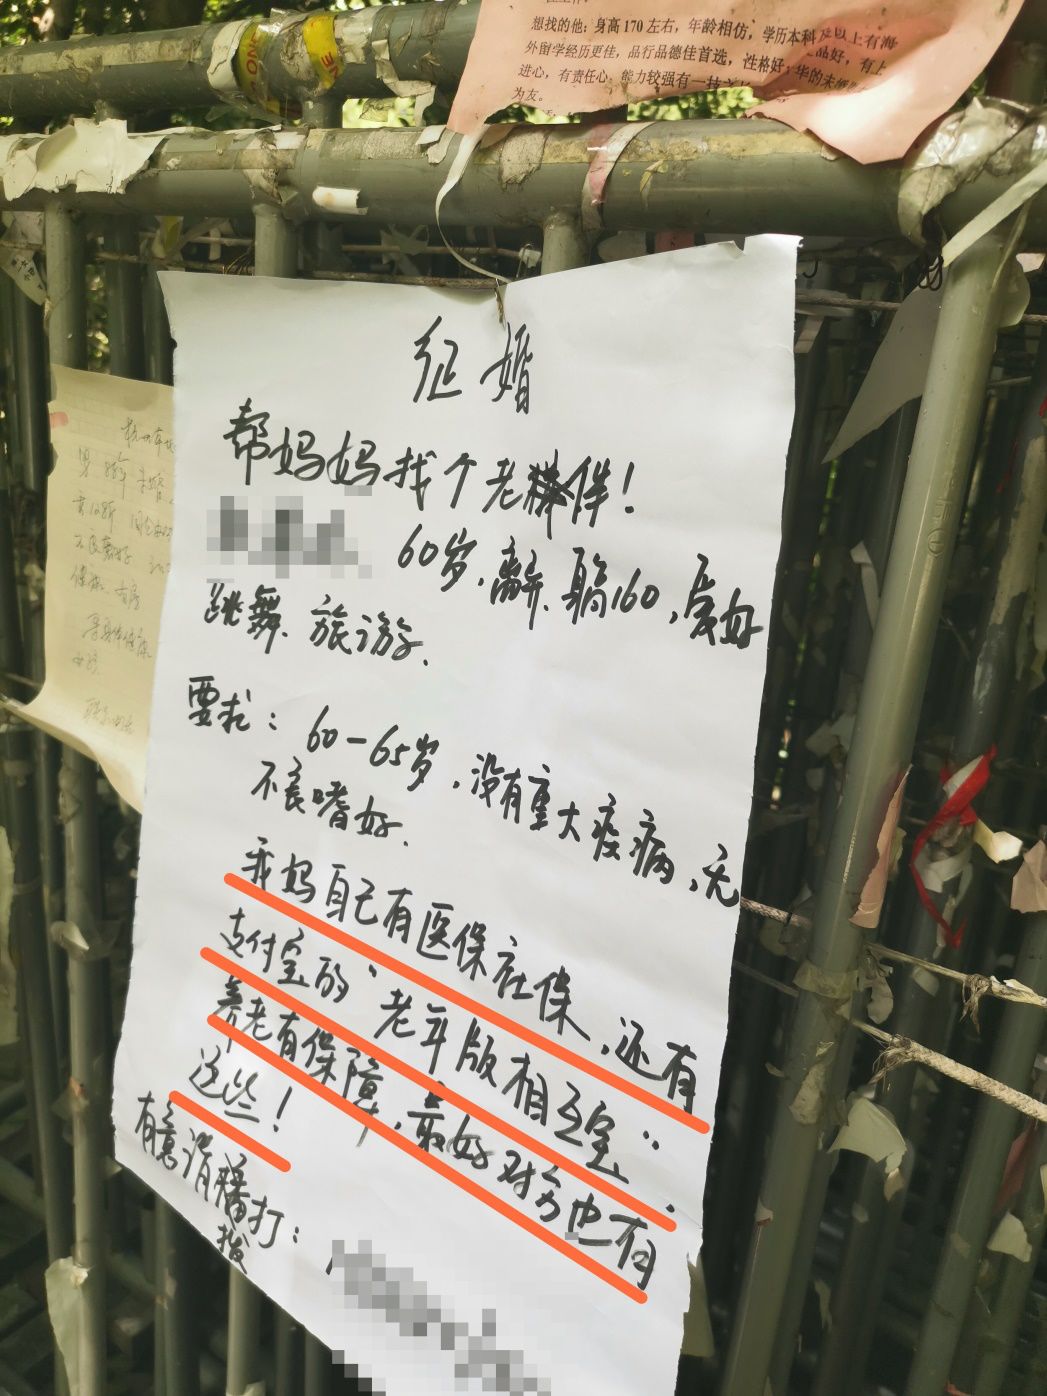 想找的他：身高170左右，年龄相仿，学历本科及以上有海
外留学经历更佳，品行品德佳首选，性格好，品好，有上
进心，有责任心，能力较强有一技
为友。
征婚
帮妈妈找个老伴！
60岁、离异、身高160、爱好
跳舞、旅游、
要求：60-65岁，没有重大疫病，无
不良嗜好.
我妈自己有医保社保，还有
支付宝的“老年版相互宝”.
养老有保障，最好对方也有
这些！
有意请拨打：